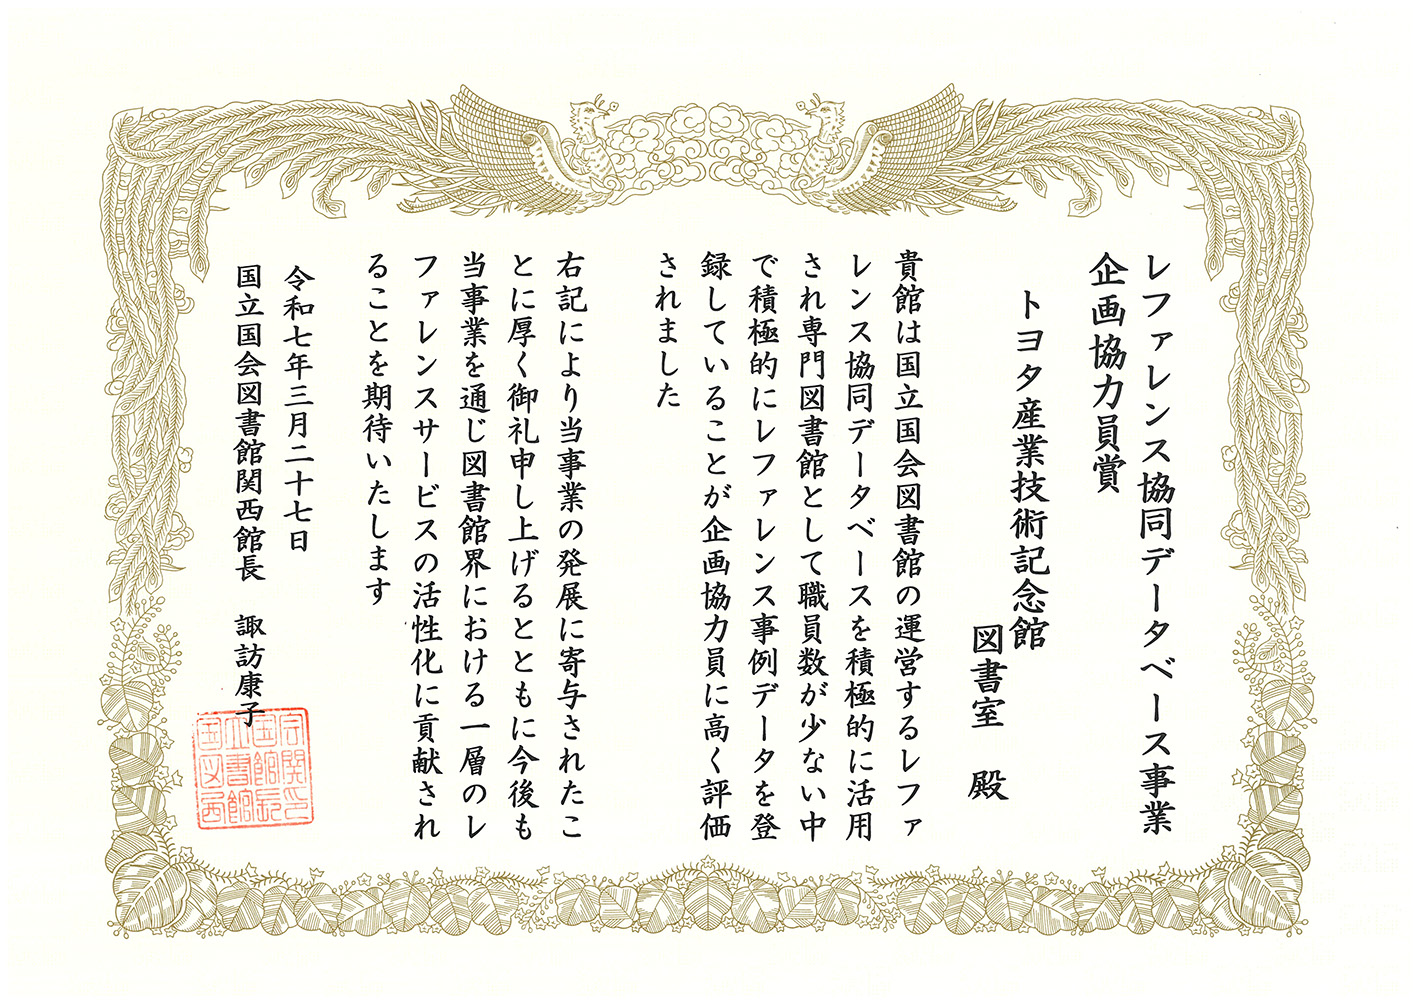 レファレンス協同データベース事業
企画協力員賞
トヨタ産業技術記念館
図書室　殿
貴館は国立国会図書館の運営するレファ
レンス協同データベースを積極的に活用
され専門図書館として職員数が少ない中
で積極的にレファレンス事例データを登
録していることが企画協力員に高く評価
されました
右記により当事業の発展に寄与されたこ
とに厚く御礼申し上げるとともに今後も
当事業を通じ図書館界における一層のレ
ファレンスサービスの活性化に貢献され
ることを期待いたします
令和七年三月二十七日
国立国会図書館関西館長　諏訪康子